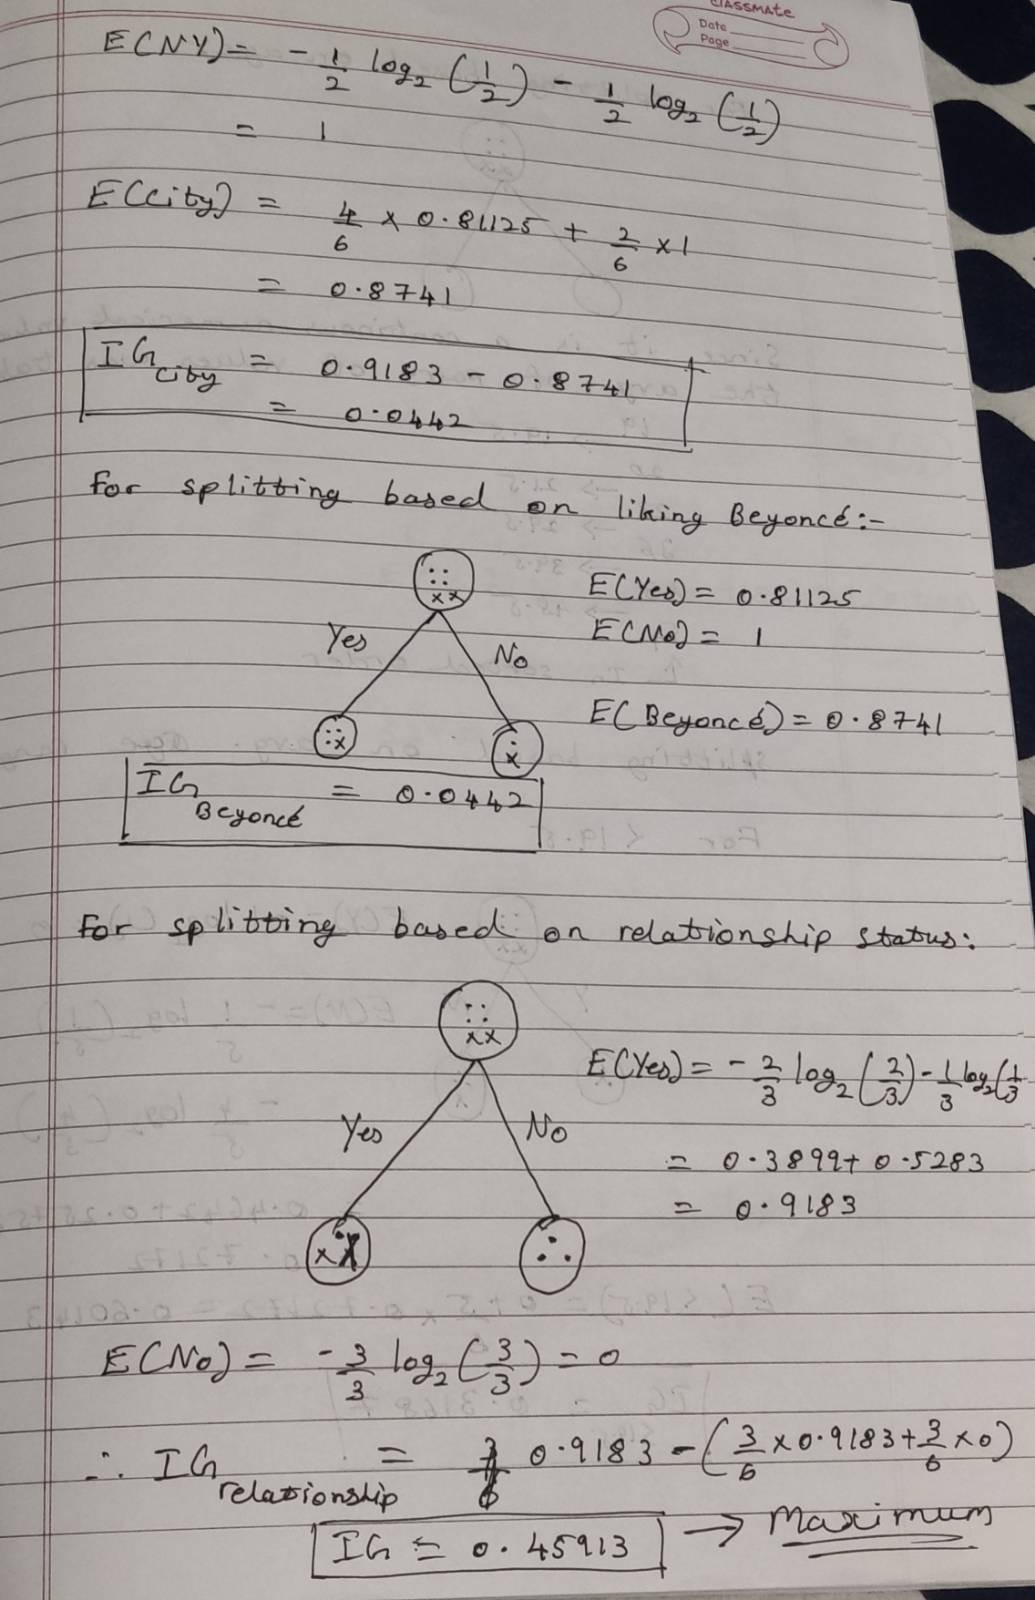 CLASSMATE
Date
Page
E(NY) = - 1/2 log₂ (1/2) - 1/2 log₂ (1/2)
= 1
E(City) = 4/6 × 0.81125 + 2/6 × 1
= 0.8741
IG city = 0.9183 - 0.8741
= 0.0442
For splitting based on liking Beyoncé:-
E(Yes) = 0.81125
E(No) = 1
Yes No
E(Beyoncé) = 0.8741
IG Beyoncé = 0.0442
For splitting based on relationship status:
E(Yes) = - 2/3 log₂ (2/3) - 1/3 log₂ (1/3
Yes No
= 0.3899 + 0.5283
= 0.9183
E(No) = - 3/3 log₂ (3/3) = 0
∴ IG relationship = 0.9183 - (3/6 × 0.9183 + 3/6 × 0)
IG = 0.45913 → Maximum